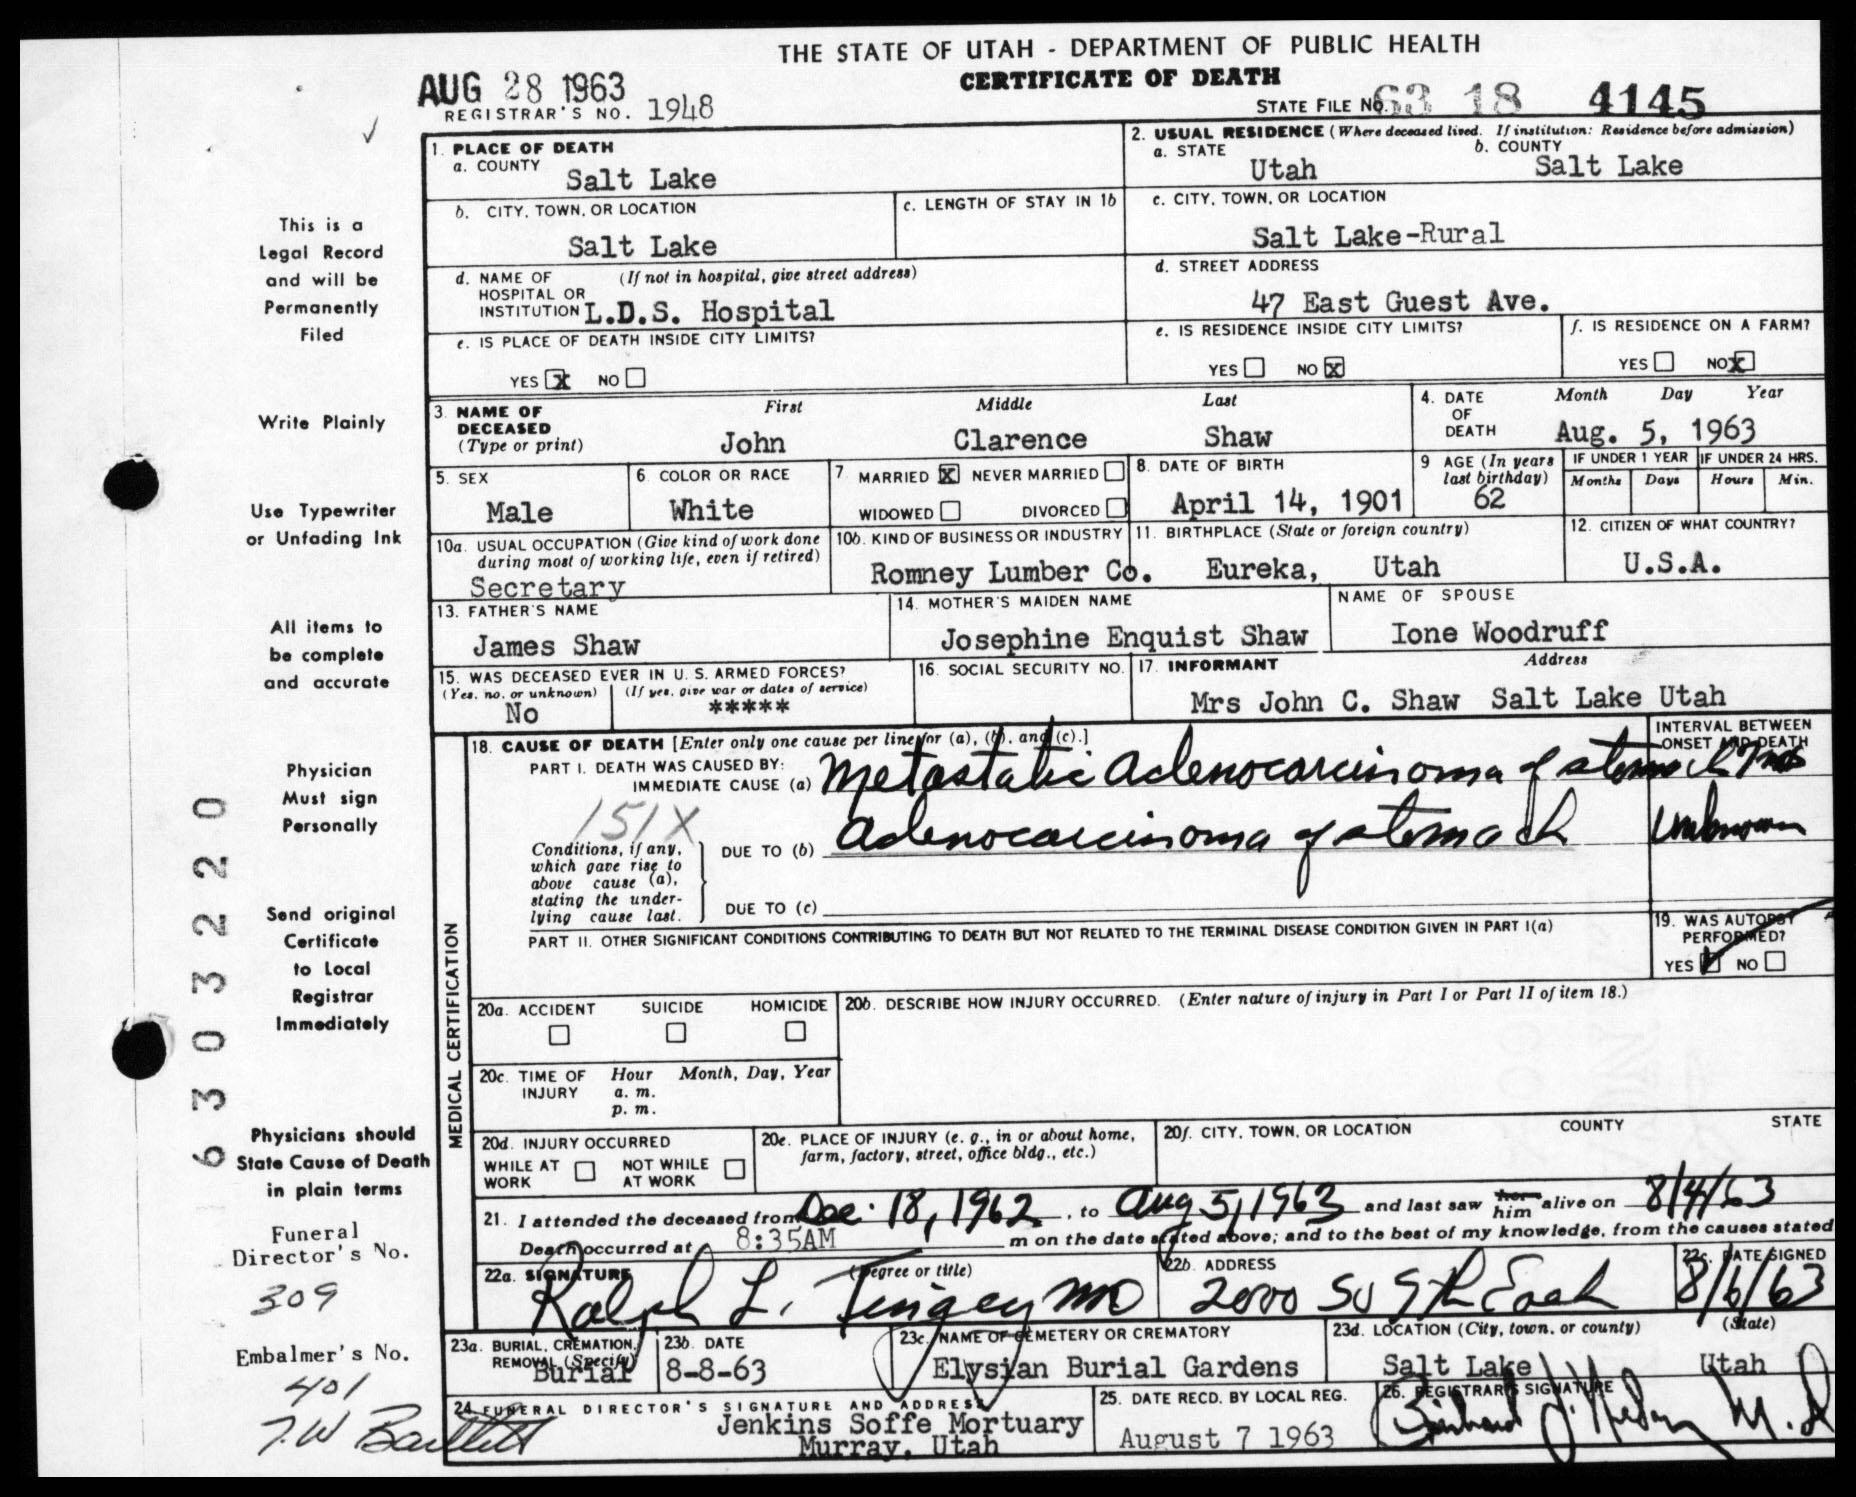 THE STATE OF UTAH - DEPARTMENT OF PUBLIC HEALTH
CERTIFICATE OF DEATH
AUG 28 1963
REGISTRAR'S NO. 1948
STATE FILE NO. 63 18 4145
This is a
Legal Record
and will be
Permanently
Filed
Write Plainly
Use Typewriter
or Unfading Ink
All items to
be complete
and accurate
Physician
Must sign
Personally
Send original
Certificate
to Local
Registrar
Immediately
Physicians should
State Cause of Death
in plain terms
Funeral
Director's No.
309
Embalmer's No.
401
T.W Bartlett
6303220
1. PLACE OF DEATH
a. COUNTY
Salt Lake
b. CITY, TOWN, OR LOCATION
Salt Lake
c. LENGTH OF STAY IN 1b
d. NAME OF (If not in hospital, give street address)
HOSPITAL OR
INSTITUTION L.D.S. Hospital
e. IS PLACE OF DEATH INSIDE CITY LIMITS?
YES X NO
2. USUAL RESIDENCE (Where deceased lived. If institution: Residence before admission)
a. STATE b. COUNTY
Utah Salt Lake
c. CITY, TOWN, OR LOCATION
Salt Lake-Rural
d. STREET ADDRESS
47 East Guest Ave.
e. IS RESIDENCE INSIDE CITY LIMITS?
YES NO X
f. IS RESIDENCE ON A FARM?
YES NO X
3. NAME OF DECEASED (Type or print)
First Middle Last
John Clarence Shaw
4. DATE OF DEATH
Month Day Year
Aug. 5, 1963
5. SEX
Male
6. COLOR OR RACE
White
7. MARRIED X NEVER MARRIED
WIDOWED DIVORCED
8. DATE OF BIRTH
April 14, 1901
9 AGE (In years last birthday)
62
IF UNDER 1 YEAR IF UNDER 24 HRS.
Months Days Hours Min.
10a. USUAL OCCUPATION (Give kind of work done
during most of working life, even if retired)
Secretary
10b. KIND OF BUSINESS OR INDUSTRY
Romney Lumber Co.
11. BIRTHPLACE (State or foreign country)
Eureka, Utah
12. CITIZEN OF WHAT COUNTRY?
U.S.A.
13. FATHER'S NAME
James Shaw
14. MOTHER'S MAIDEN NAME
Josephine Enquist Shaw
NAME OF SPOUSE
Ione Woodruff
15. WAS DECEASED EVER IN U. S. ARMED FORCES?
(Yes, no, or unknown) (If yes, give war or dates of service)
No *****
16. SOCIAL SECURITY NO.
17. INFORMANT Address
Mrs John C. Shaw Salt Lake Utah
MEDICAL CERTIFICATION
18. CAUSE OF DEATH [Enter only one cause per line for (a), (b), and (c).]
INTERVAL BETWEEN
ONSET AND DEATH
PART I. DEATH WAS CAUSED BY:
IMMEDIATE CAUSE (a) Metastatic Adenocarcinoma of stomach
151X
Conditions, if any,
which gave rise to
above cause (a),
stating the under-
lying cause last.
DUE TO (b) Adenocarcinoma of stomach Unknown
DUE TO (c)
PART II. OTHER SIGNIFICANT CONDITIONS CONTRIBUTING TO DEATH BUT NOT RELATED TO THE TERMINAL DISEASE CONDITION GIVEN IN PART I(a)
19. WAS AUTOPSY
PERFORMED?
YES NO
20a. ACCIDENT SUICIDE HOMICIDE
20b. DESCRIBE HOW INJURY OCCURRED. (Enter nature of injury in Part I or Part II of item 18.)
20c. TIME OF INJURY
Hour Month, Day, Year
a. m.
p. m.
20d. INJURY OCCURRED
WHILE AT WORK NOT WHILE AT WORK
20e. PLACE OF INJURY (e. g., in or about home,
farm, factory, street, office bldg., etc.)
20f. CITY, TOWN, OR LOCATION COUNTY STATE
21. I attended the deceased from Dec. 18, 1962, to Aug 5, 1963 and last saw her him alive on 8/4/63
Death occurred at 8:35AM m on the date stated above; and to the best of my knowledge, from the causes stated
22a. SIGNATURE (Degree or title)
Ralph L. Tingey MD
22b. ADDRESS
2000 So 9th East
22c. DATE SIGNED
8/6/63
23a. BURIAL, CREMATION,
REMOVAL (Specify)
Burial
23b. DATE
8-8-63
23c. NAME OF CEMETERY OR CREMATORY
Elysian Burial Gardens
23d. LOCATION (City, town, or county) (State)
Salt Lake Utah
24. FUNERAL DIRECTOR'S SIGNATURE AND ADDRESS
Jenkins Soffe Mortuary
Murray, Utah
25. DATE RECD. BY LOCAL REG.
August 7 1963
26. REGISTRAR'S SIGNATURE
M.D